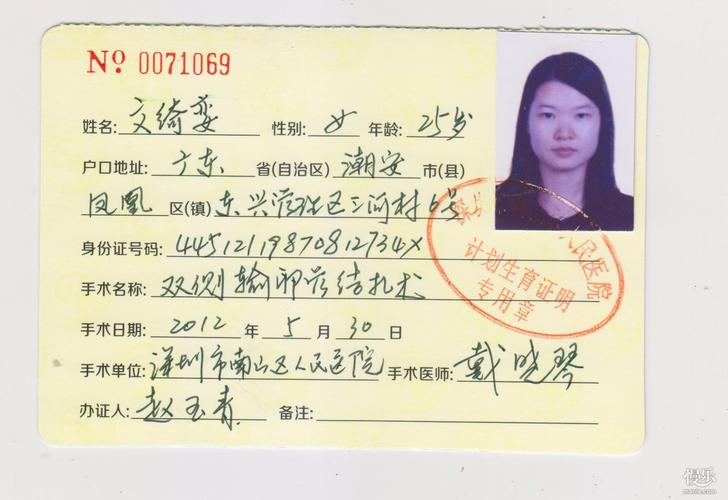 № 0071069
姓名: 文绮娈 性别: 女 年龄: 25岁
户口地址: 广东 省(自治区) 潮安 市(县)
凤凰 区(镇) 东兴管理区三河村6号
身份证号码: 44512119870812734X
手术名称: 双侧输卵管结扎术
手术日期: 2012 年 5 月 30 日
手术单位: 深圳市南山区人民医院 手术医师: 戴晓琴
办证人: 赵玉青 备注:
民医院
计划生育证明
专用章